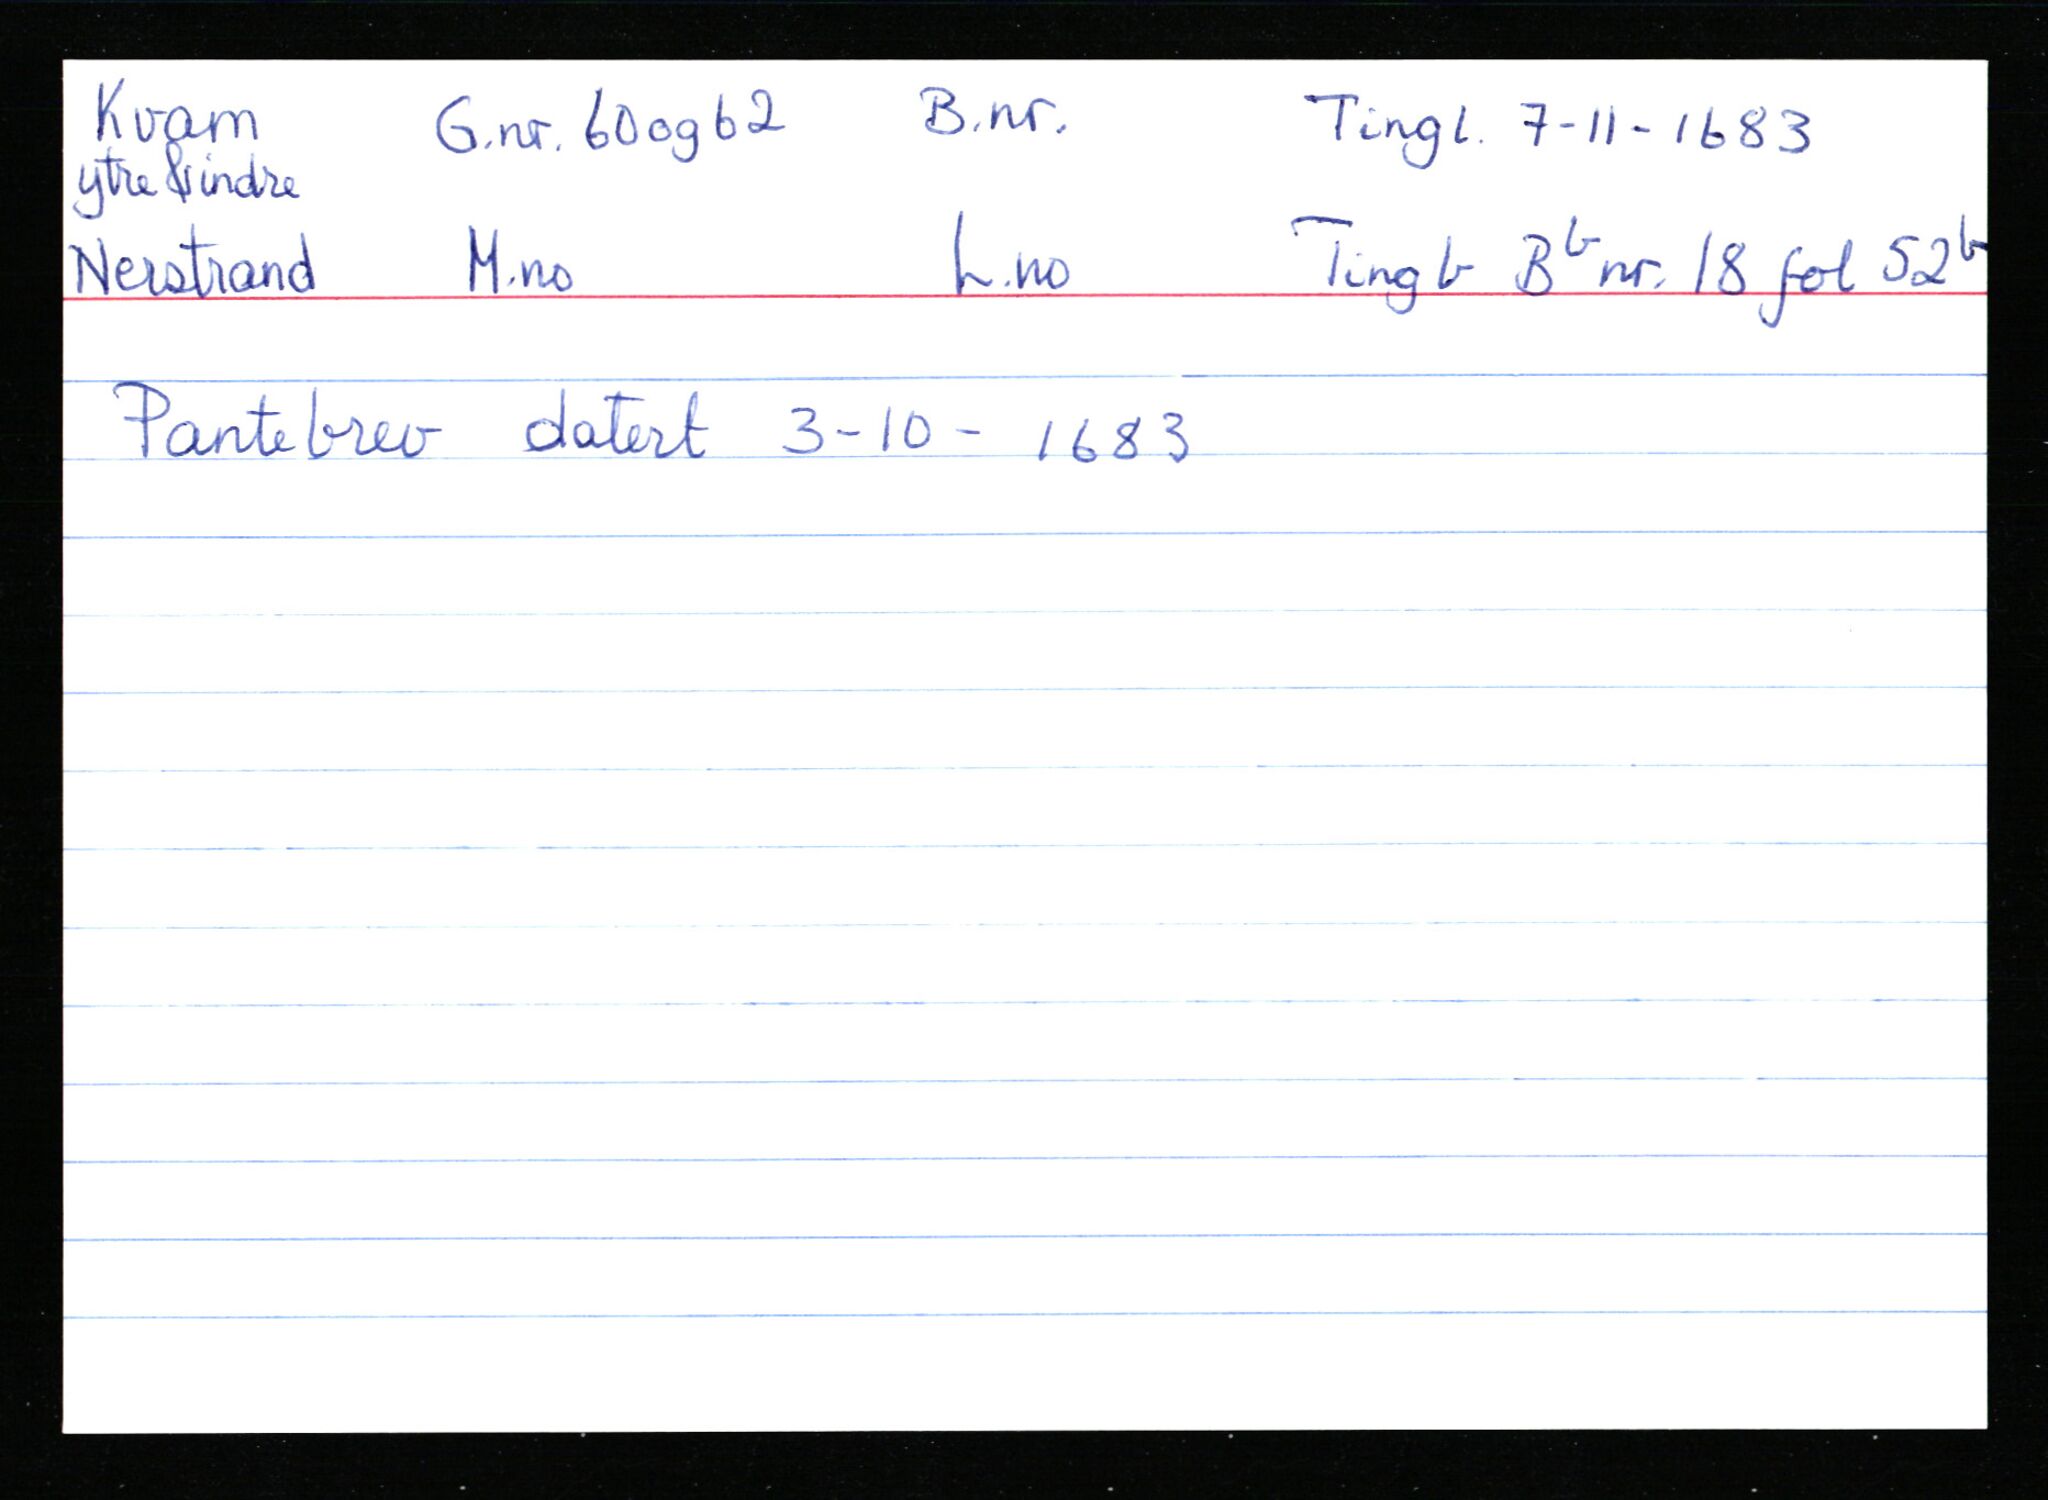 Kvam G.nr. 60 og 62 B.nr. Tingl. 7-11-1683
ytre & indre
Nerstrand M.no L.no Tingb Bb nr. 18 fol 52b
Pantebrev datert 3-10-1683